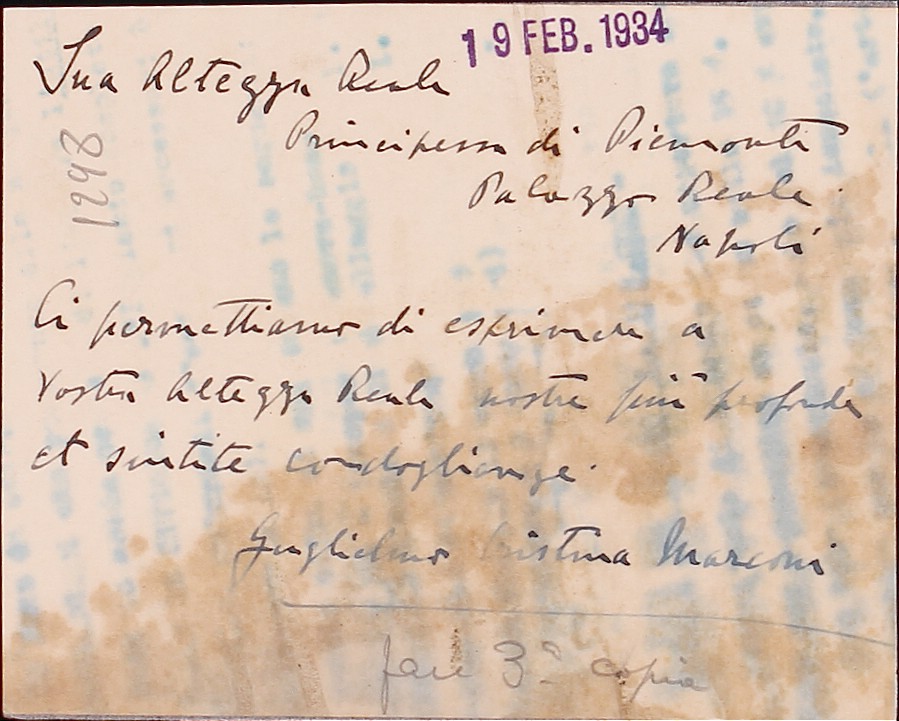 19 FEB. 1934
Sua Altezza Reale
Principessa di Piemonte
Palazzo Reale
Napoli
1298
Ci permettiamo di esprimere a
Vostra Altezza Reale nostre più profonde
et sintite condoglianze.
Guglielmo Cristina Marconi
fare 3ª copia